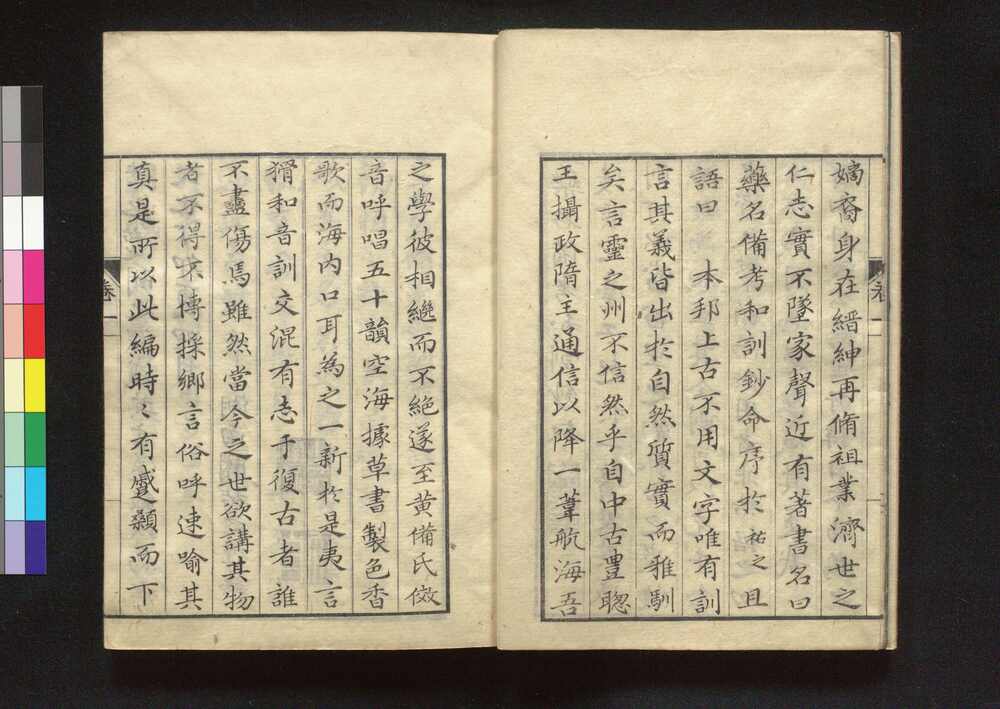 嫡裔身在縉紳再脩祖業濟世之
仁志實不墜家聲近有著書名曰
藥名備考和訓鈔命序於祐之且
語曰 本邦上古不用文字唯有訓
言其義皆出於自然質實而雅馴
矣言靈之州不信然乎自中古豊聦
王攝政隋主通信以降一葦航海吾
之學彼相繼而不絶遂至黄備氏傚
音呼唱五十韻空海據草書製色香
歌而海内口耳為之一新於是夷言
猾和音訓交混有志于復古者誰
不盡傷焉雖然當今之世欲講其物
者不得不博採鄉言俗呼速喻其
真是所以此編時〻有蹙顙而下